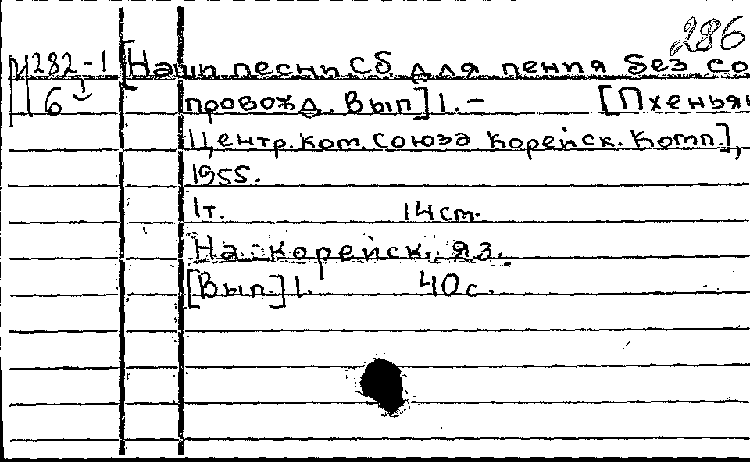 286
М282-1 [Наши песни. Сб. для пения без со
6 провожд. Вып] 1. - [Пхеньян
Центр. ком. союза корейск. комп.],
1955.
1т. 14 cm.
На корейск. яз.
[Вып.] 1. 40 с.